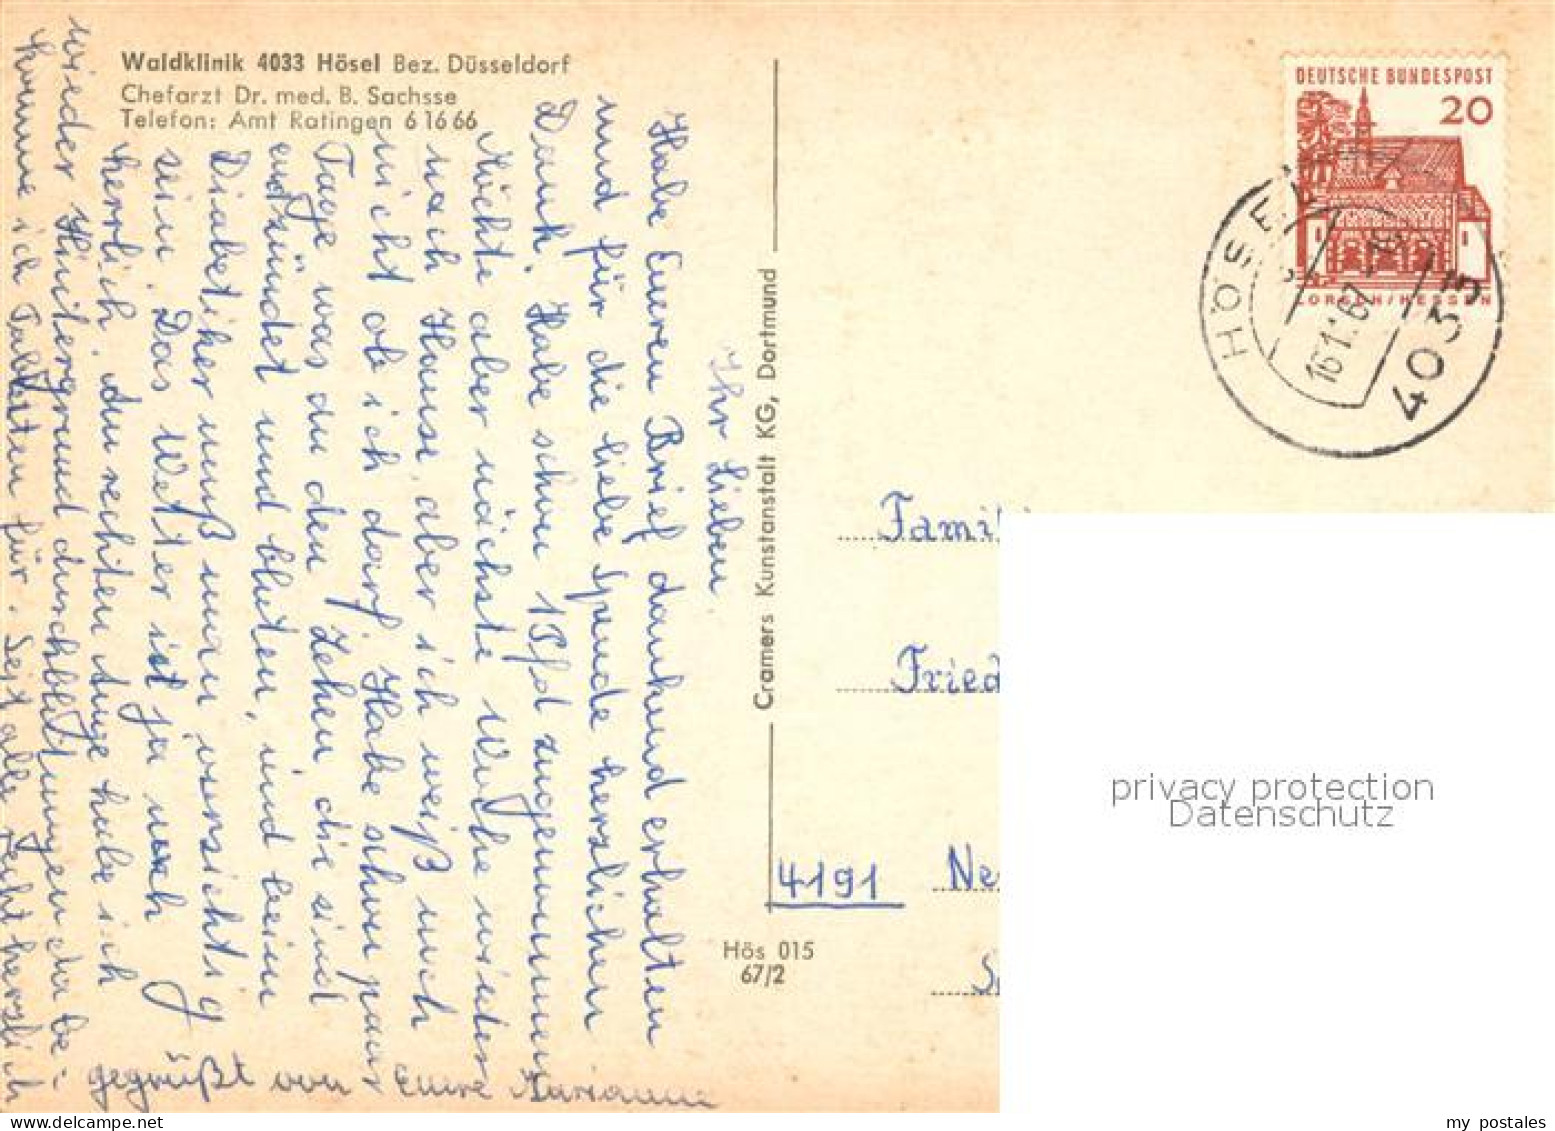 Waldklinik 4033 Hösel Bez. Düsseldorf
Chefarzt Dr. med. B. Sachsse
Telefon: Amt Ratingen 6 16 66
Ihr Lieben
Habe Euren Brief dankend erhalten
und für die liebe Spende herzlichen
Dank. Habe schon 1 Pfd zugenommen
Möchte aber nächste Woche wieder
nach Hause, aber ich weiß noch
nicht ob ich darf. Habe schon paar
Tage was an den Zehen die sind
entzündet und bluten, und beim
Diabetiker muß man vorsichtig
sein. Das Wetter ist ja noch
herrlich. Am rechten Auge habe ich
wieder Hintergrund durchblutungen da be-
komme ich Tabletten für. Seit alle recht herzlich
gegrüßt von Eure Marianne
Cramers Kunstanstalt KG, Dortmund
Hös 015
67/2
DEUTSCHE BUNDESPOST
20
LORSCH/HESSEN
HÖSEL
4033
Famil
Fried
4191 Ne
privacy protection
Datenschutz
my postales